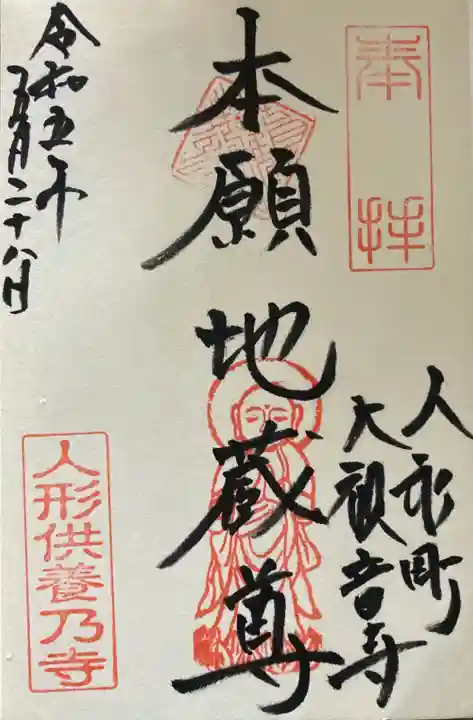 奉拝
人形町
大観音寺
本願地蔵尊
令和五年
五月二十八日
人形供養乃寺